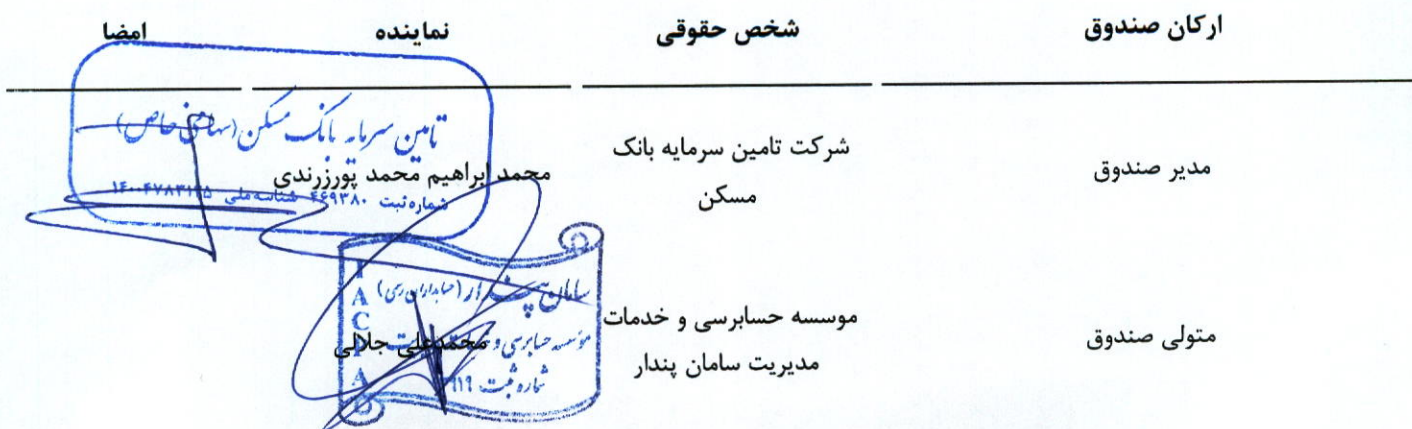 ارکان صندوق شخص حقوقی نماینده امضا
مدیر صندوق
شرکت تامین سرمایه بانک
مسکن
محمد ابراهیم محمد پورزرندی
تامین سرمایه بانک مسکن (سهامی خاص)
شماره ثبت ۴۶۹۳۸۰ شناسه ملی
متولی صندوق
موسسه حسابرسی و خدمات
مدیریت سامان پندار
محمدعلی جلالی
سامان (حسابداران رسمی)
موسسه حسابرسی و
شماره ثبت